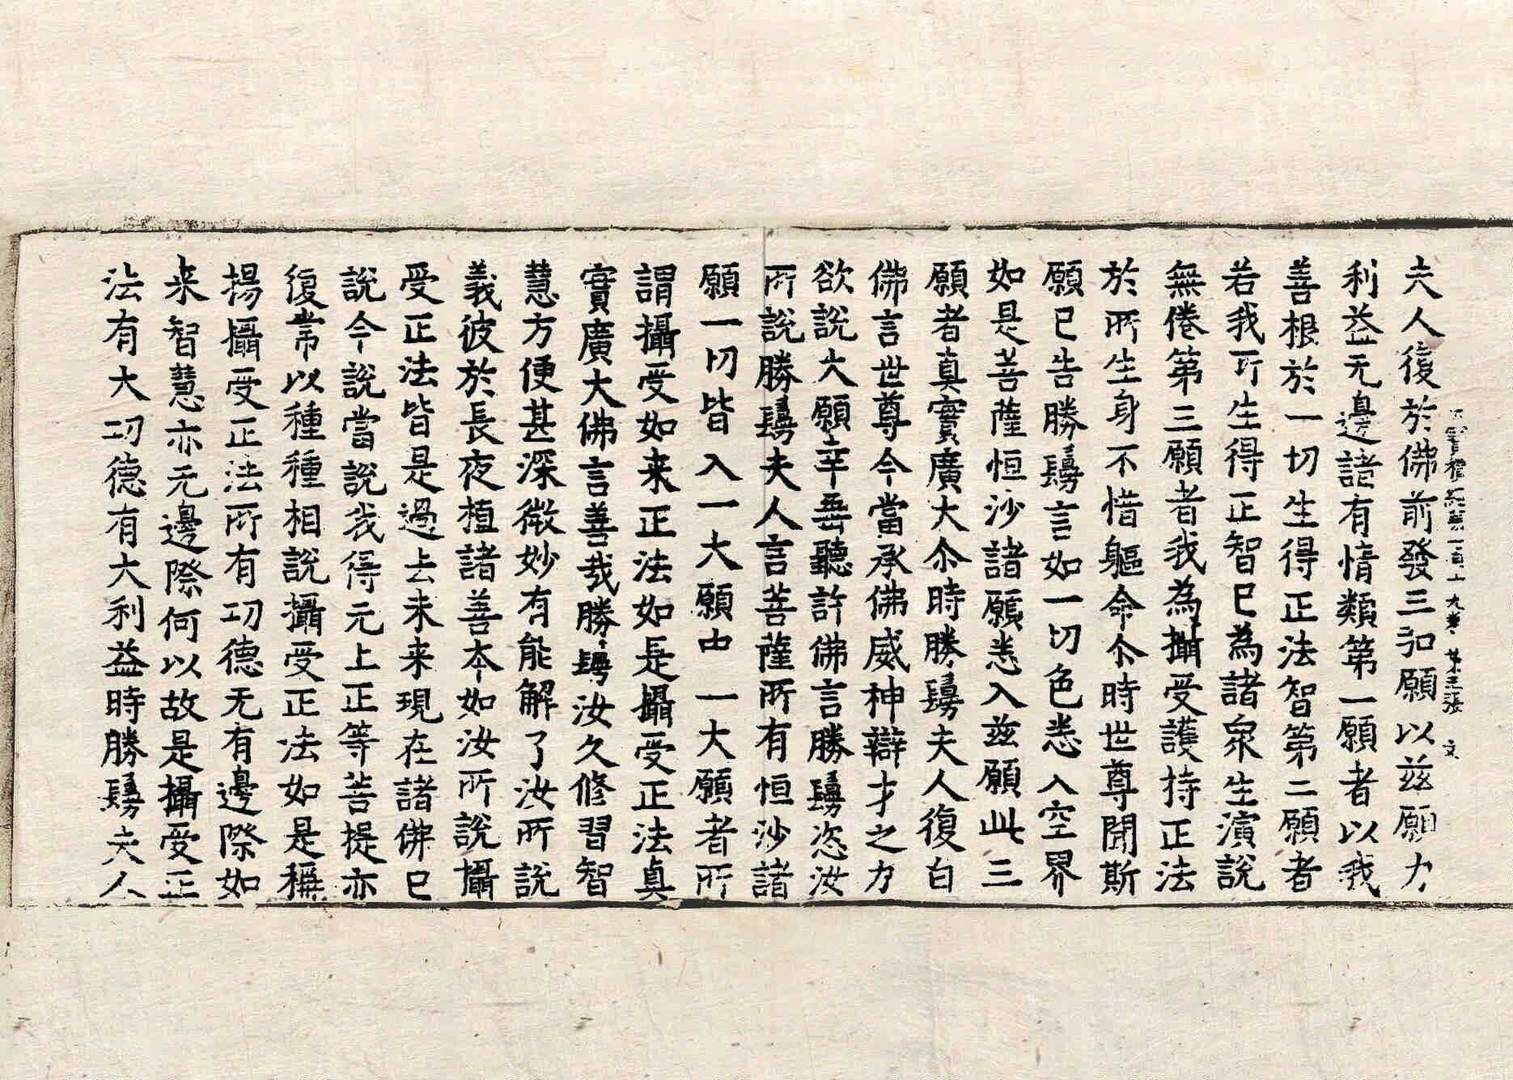 寶積經第一百十九卷 第三張 文
夫人復於佛前發三弘願以茲願力
利益无邊諸有情類第一願者以我
善根於一切生得正法智第二願者
若我所生得正智已為諸衆生演說
無倦第三願者我為攝受護持正法
於所生身不惜軀命尒時世尊聞斯
願已告勝鬘言如一切色悉入空界
如是菩薩恒沙諸願悉入茲願此三
願者真實廣大尒時勝鬘夫人復白
佛言世尊今當承佛威神辯才之力
欲說大願幸垂聽許佛言勝鬘恣汝
所說勝鬘夫人言菩薩所有恒沙諸
願一切皆入一大願中一大願者所
謂攝受如来正法如是攝受正法真
實廣大佛言善哉勝鬘汝久修習智
慧方便甚深微妙有能解了汝所說
義彼於長夜植諸善本如汝所說攝
受正法皆是過去未来現在諸佛已
說今說當說我得无上正等菩提亦
復常以種種相說攝受正法如是稱
揚攝受正法所有功德无有邊際如
来智慧亦无邊際何以故是攝受正
法有大功德有大利益時勝鬘夫人